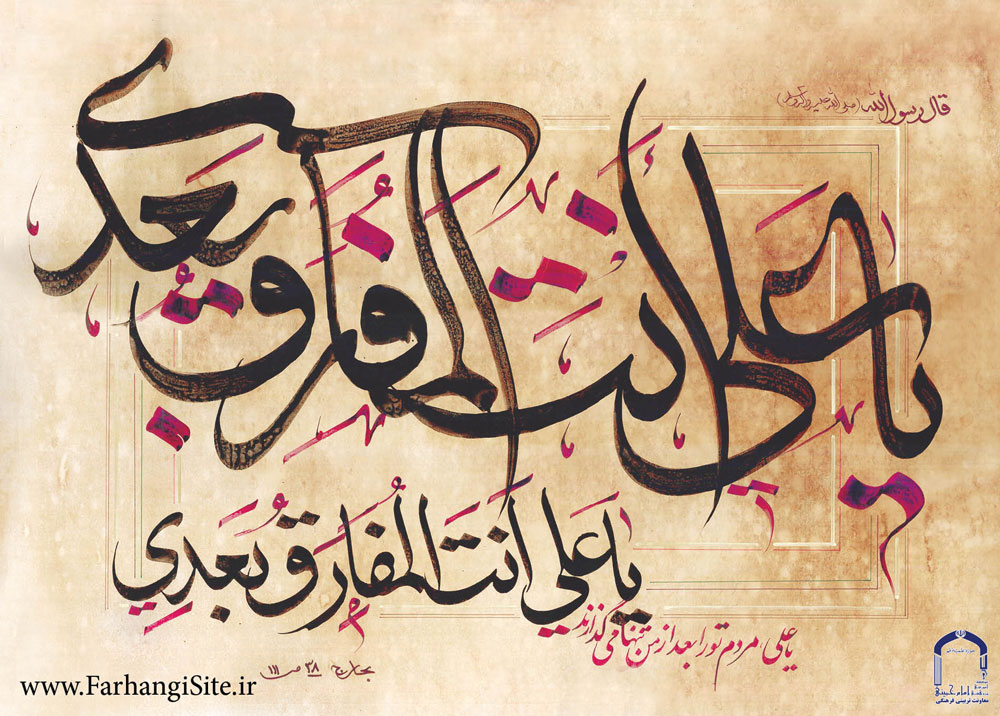 قال رسول الله (صلی الله علیه و آله)
یا علي أنت المفارق بعدي
یا عَلي أنتَ المُفارَق بَعدِي
یا علی، مردم تو را بعد از من تنها می گذارند
بحار ج ۳۸ ص ۱۱۱
www.FarhangiSite.ir
معاونت تربیتی فرهنگی